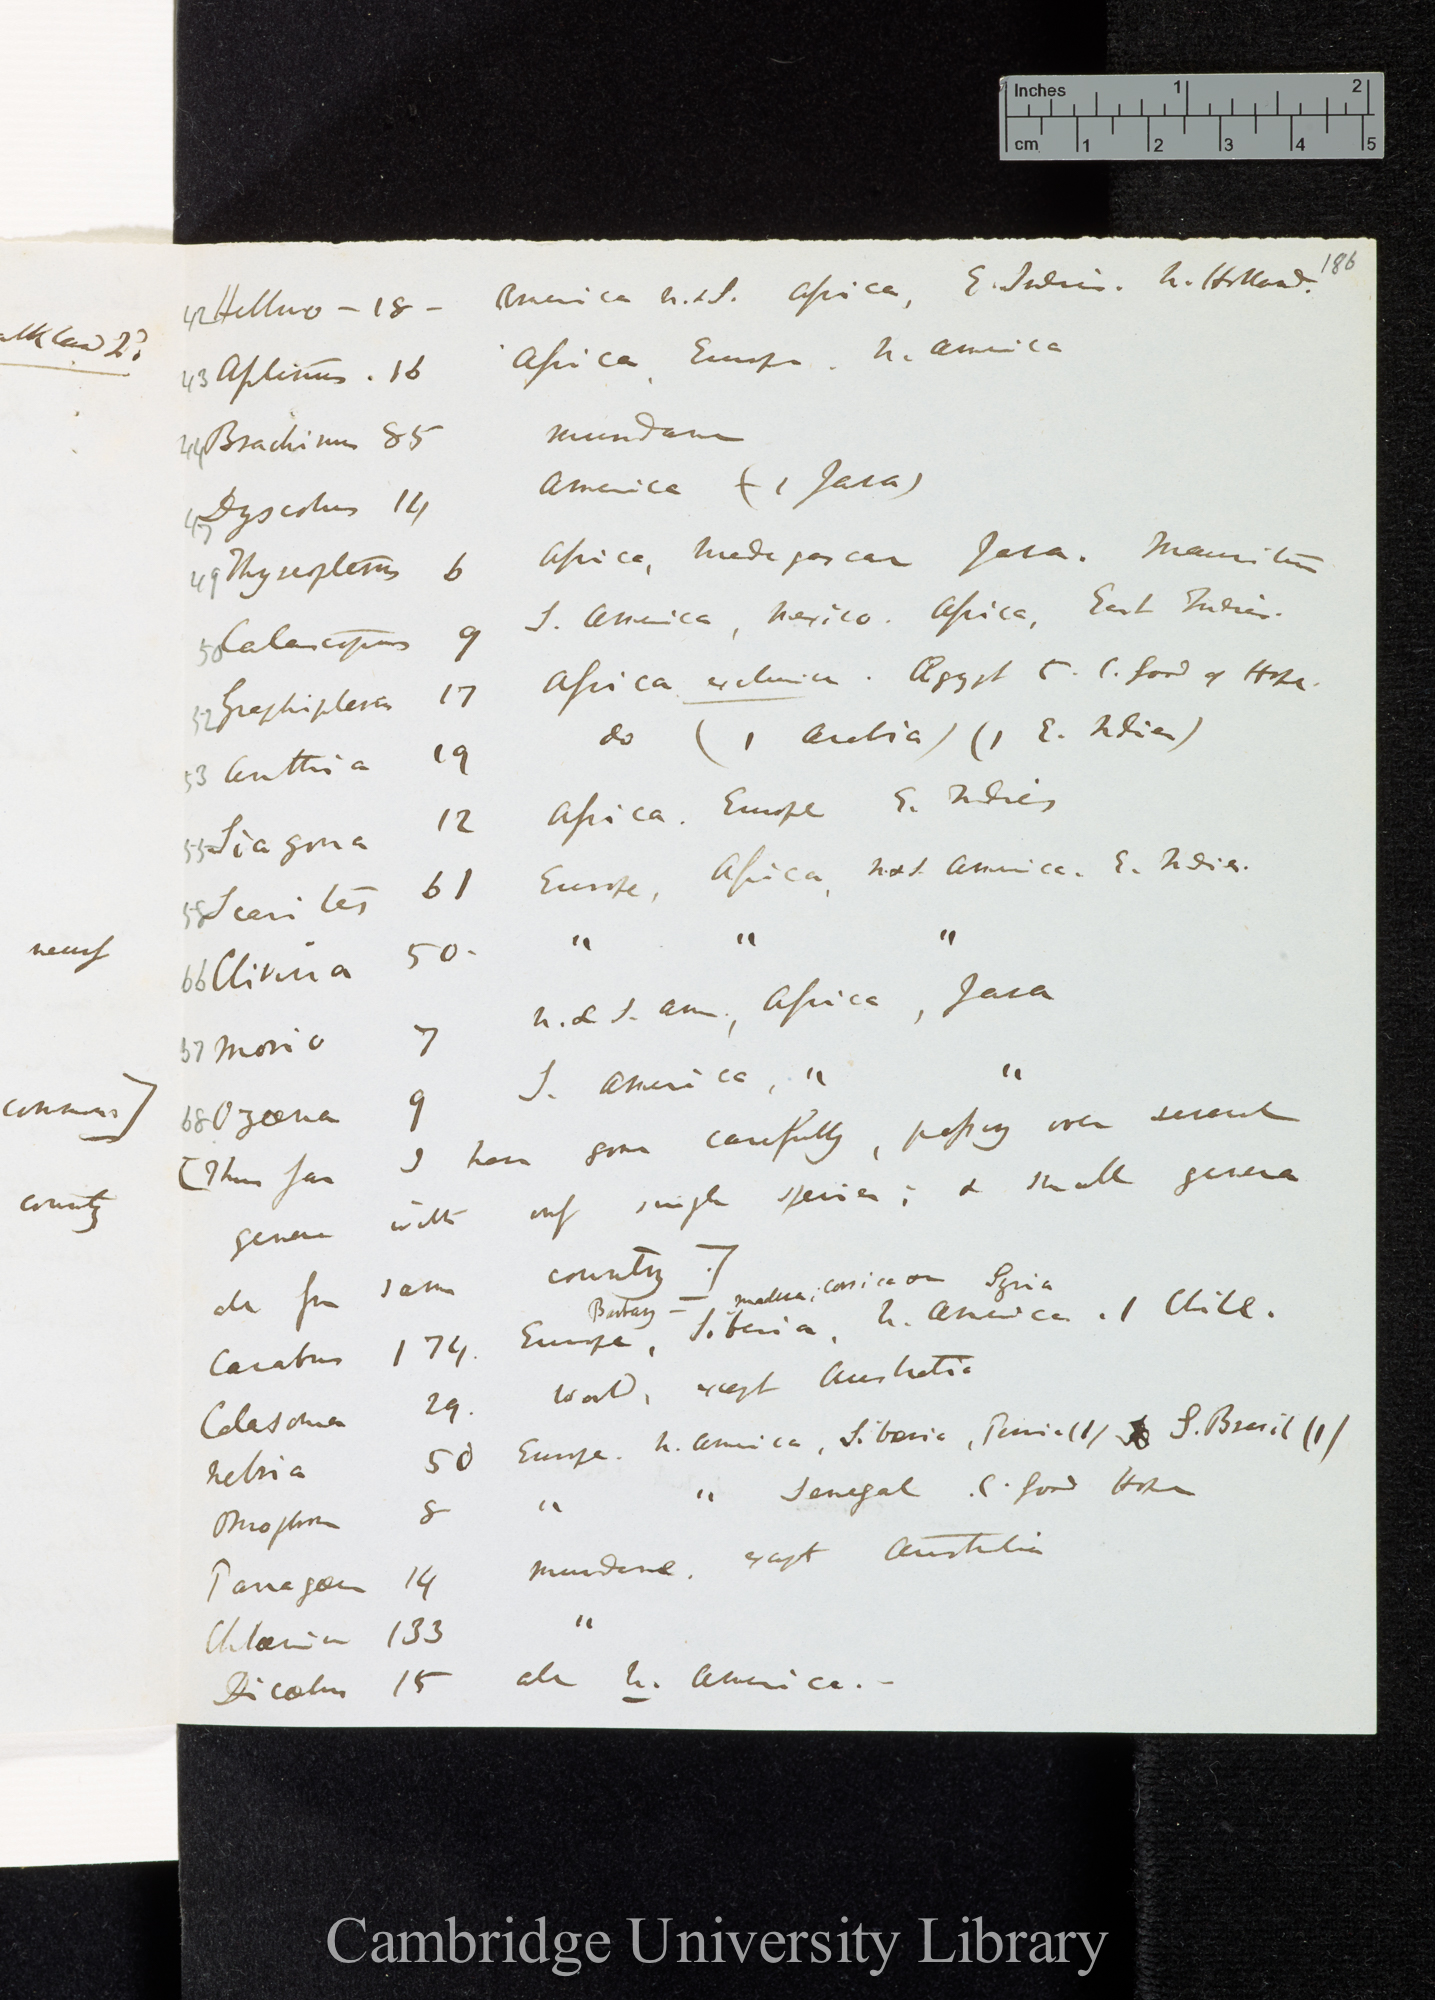 Inches 1 2
cm 1 2 3 4 5
186
42 Helluo - 18 - America N. & S. Africa, E. Indies. N. Holland.
43 Aptinus. 16 Africa, Europe. N. America
44 Brachinus 85 mundane
47 Dyscolus 14 America (+ 1 Java)
49 Thyreopterus 6 Africa, Madagascar Java. Mauritius
50 Catascopus 9 S. America, Mexico. Africa, East Indies.
52 Graphipterus 17 Africa exclusive. Ægypt 5. C. Good of Hope.
53 Anthia 19 do (1 Arabia) (1 E. Indies)
55 Siagona 12 Africa. Europe E. Indies
58 Scarites 61 Europe, Africa, N & S. America. E. Indies.
66 Clivina 50. " " "
67 Morio 7 N. & S. Am., Africa, Java
68 Ozæna 9 S. America, " "
[Thus far I have gone carefully, passing over several
genera with only single species; & small genera
all from same country.]
Barbary — Madeira; Corsica Syria
Carabus 174. Europe, Siberia, N. America. 1 Chile.
Calasoma 29. World, except Australia
Nebria 50 Europe. N. America, Siberia, (1) S. Brasil (1)
Omophron 8 " " Senegal. C. Good Hope
Panagæus 14 mundane. except Australia
Chlænius 133 "
Dicælus 15 all N. America. -
newly
common]
country
Cambridge University Library